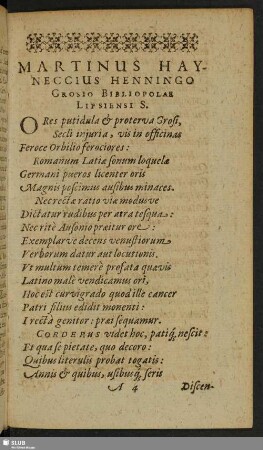 MARTINUS HAY-
NECCIUS HENNINGO
GROSIO BIBLIOPOLAE
LIPSIENSI S.
O Res putidula & proterva Grosi,
Secli injuria, vis in officinas
Feroce Orbilio ferociores:
Romanum Latiæ sonum loquelæ
Germani pueros licenter oris
Magnis poscimus ausibus minaces.
Nec recta ratio viæ modusve
Dictatur rudibus per atra tesqua:
Nec ritè Ausonio præitur ore:
Exemplarve decens venustiorum
Verborum datur aut locutionis.
Ut multum temerè profata quævis
Latino malè vendicamus ori,
Hoc est curvigrado quod ille cancer
Patri filius edidit monenti:
I rectà genitor: præi sequamur.
CORDERUS videt hoc, patiq; nescit:
Et qua se pietate, quo decoro:
Quibus literulis probat togatis:
Annis & quibus, usibusq; seris
A 4 Discen-
SLUB